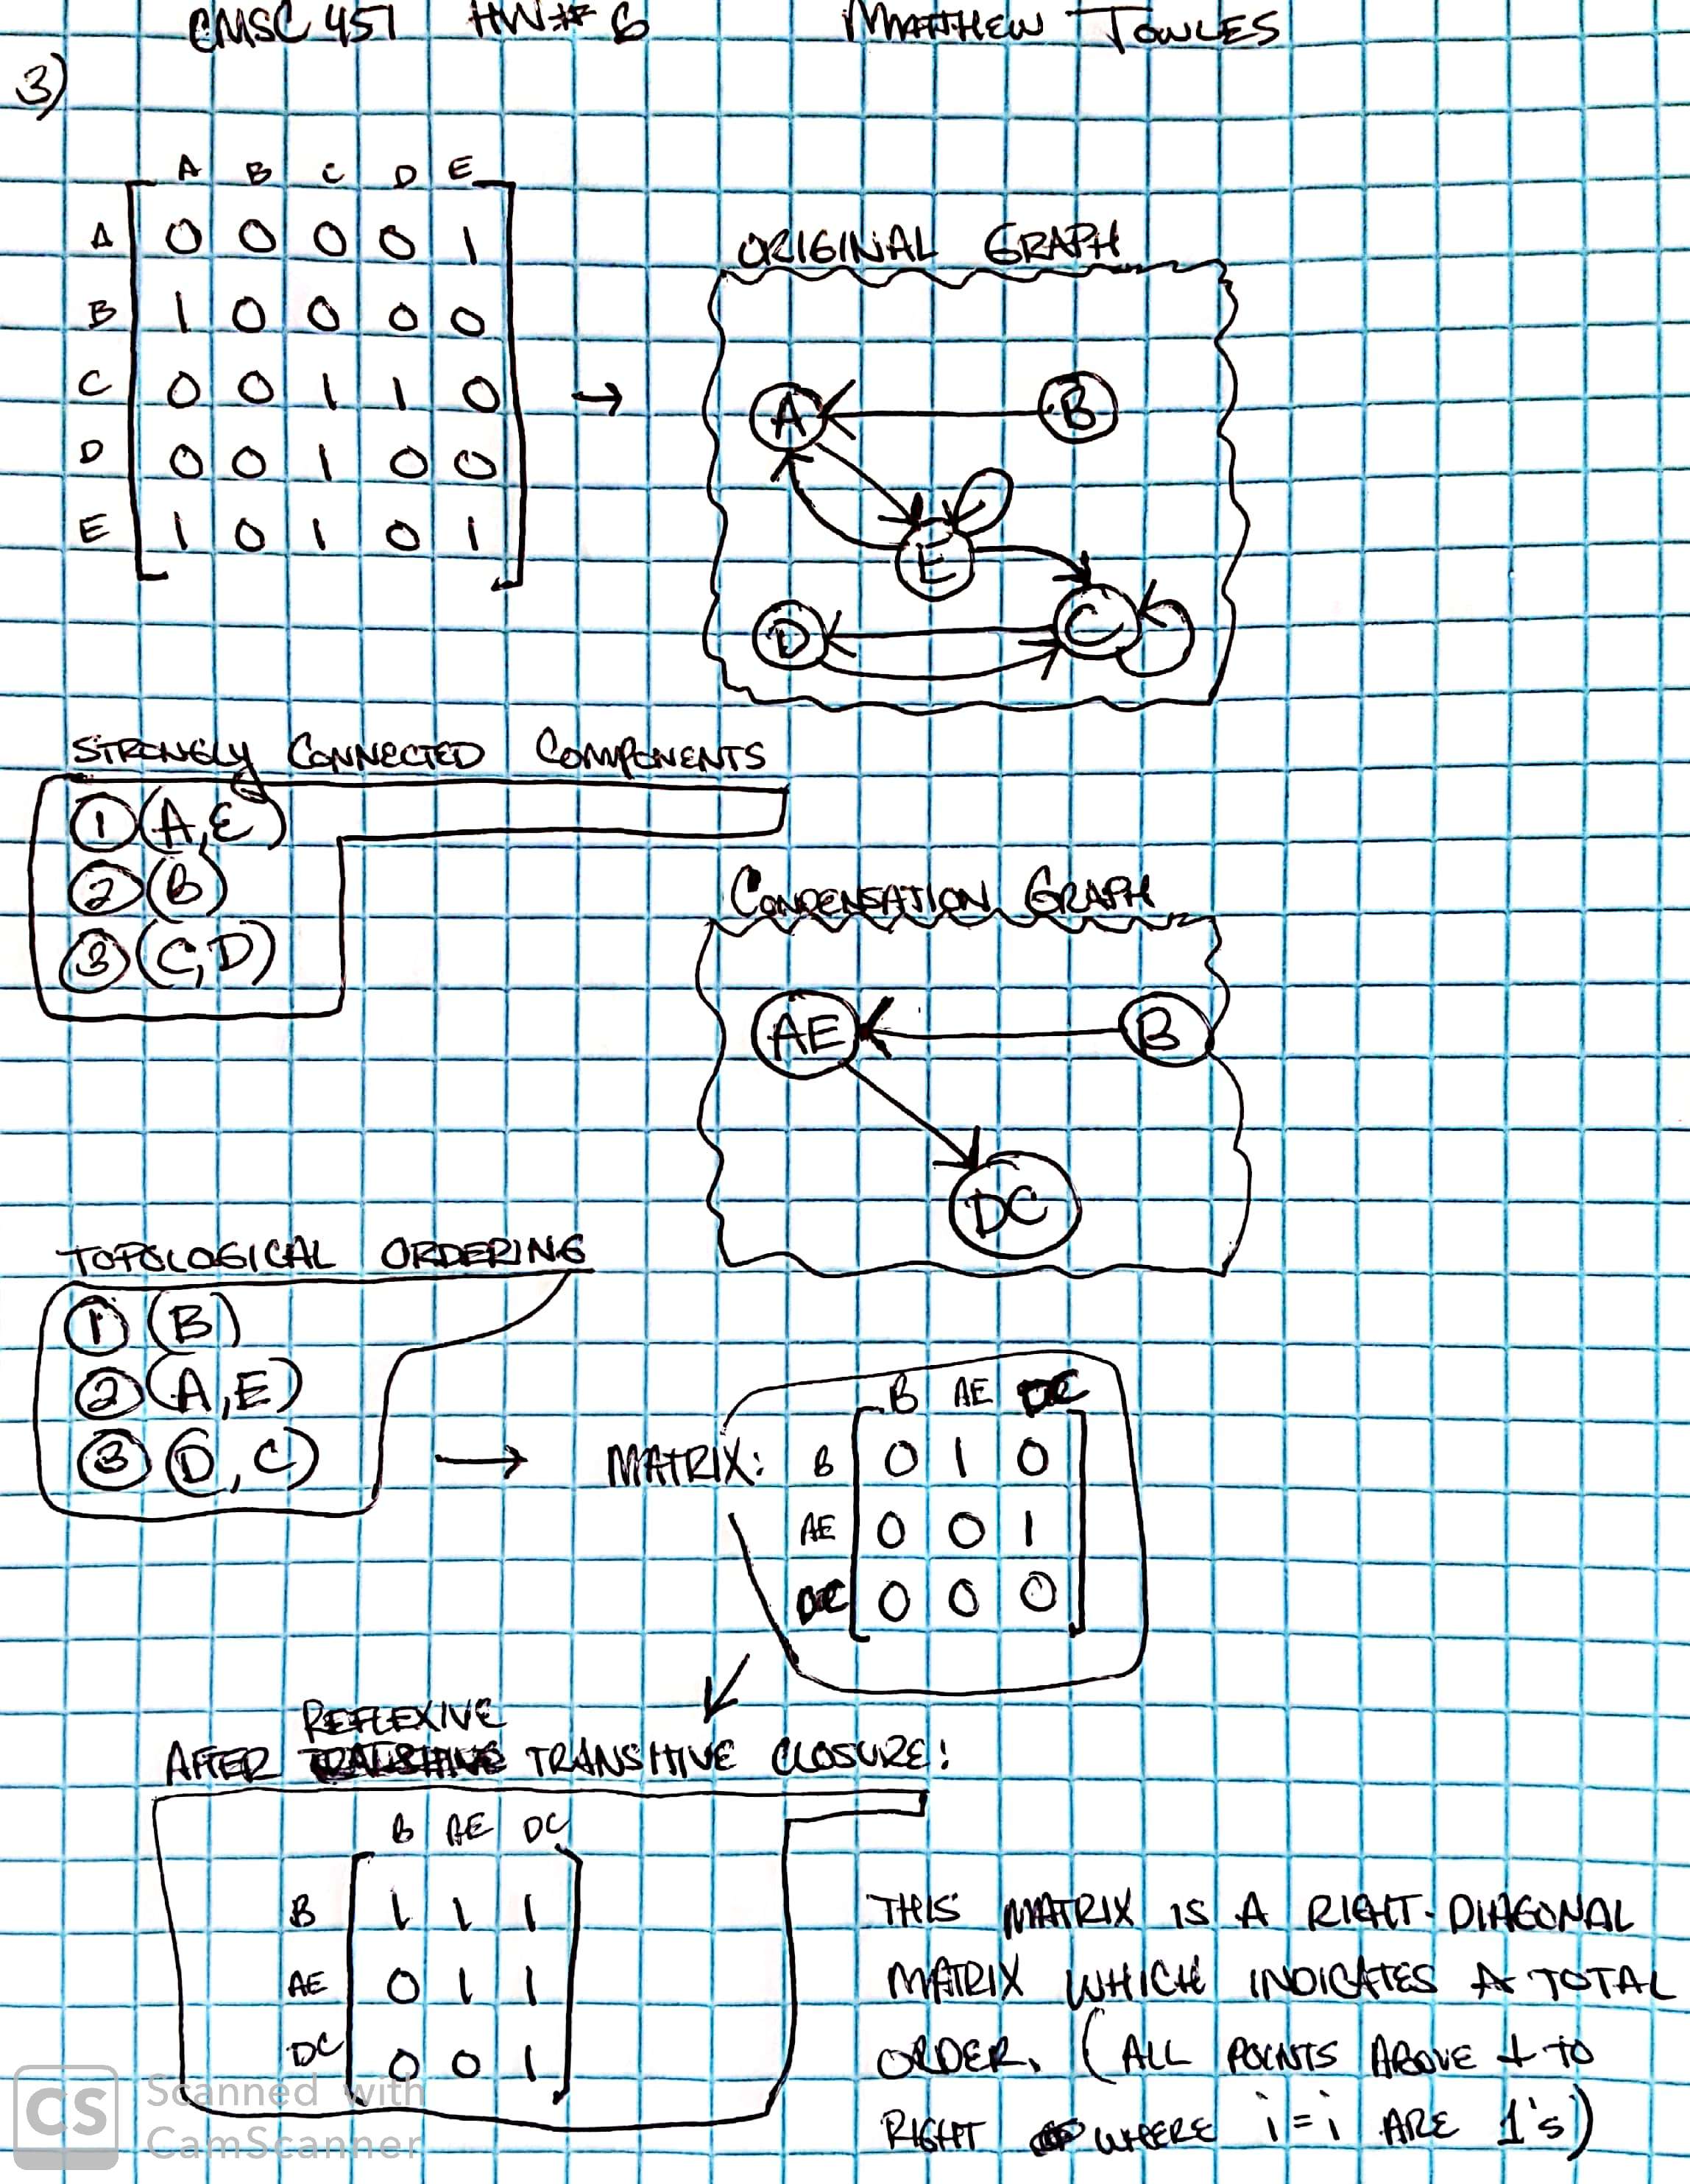 CMSC 451 HW# 6 MATTHEW TOWLES
3)
A B C D E
A 0 0 0 0 1
B 1 0 0 0 0
C 0 0 1 1 0
D 0 0 1 0 0
E 1 0 1 0 1
→
ORIGINAL GRAPH
A B
E
D C
STRONGLY CONNECTED COMPONENTS
1 (A,E)
2 (B)
3 (C,D)
CONDENSATION GRAPH
AE B
DC
TOPOLOGICAL ORDERING
1 (B)
2 (A,E)
3 (D,C)
→ MATRIX:
B AE DC
B 0 1 0
AE 0 0 1
DC 0 0 0
REFLEXIVE
AFTER TRANSITIVE CLOSURE:
B AE DC
B 1 1 1
AE 0 1 1
DC 0 0 1
THIS MATRIX IS A RIGHT-DIAGONAL
MATRIX WHICH INDICATES A TOTAL
ORDER. (ALL POINTS ABOVE + TO
RIGHT WHERE i=i ARE 1's)
CS Scanned with
CamScanner